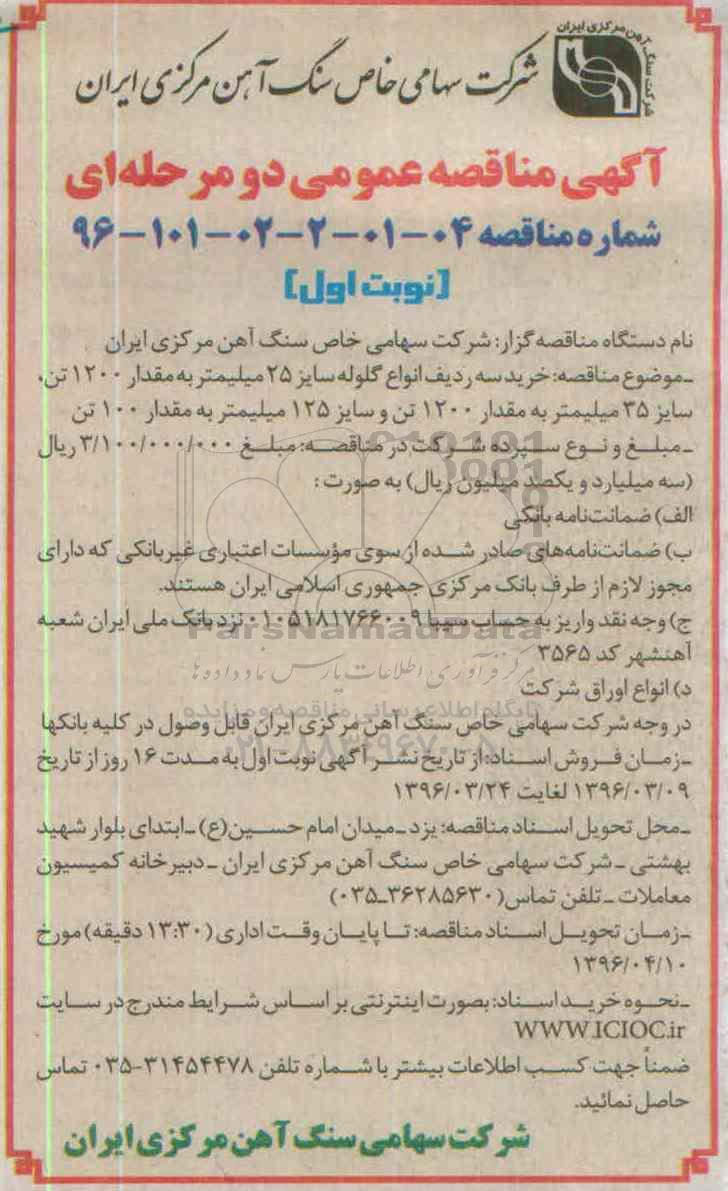 شرکت سنگ آهن مرکزی ایران
شرکت سهامی خاص سنگ آهن مرکزی ایران
آگهی مناقصه عمومی دو مرحله‌ای
شماره مناقصه ۰۴-۰۱-۲-۰۲-۱۰۱-۹۶
[نوبت اول]
نام دستگاه مناقصه گزار: شرکت سهامی خاص سنگ آهن مرکزی ایران
ـ موضوع مناقصه: خرید سه ردیف انواع گلوله سایز ۲۵ میلیمتر به مقدار ۱۲۰۰ تن،
سایز ۳۵ میلیمتر به مقدار ۱۲۰۰ تن و سایز ۱۲۵ میلیمتر به مقدار ۱۰۰ تن
ـ مبلغ و نوع سپرده شرکت در مناقصه: مبلغ ۳/۱۰۰/۰۰۰/۰۰۰ ریال
(سه میلیارد و یکصد میلیون ریال) به صورت :
الف) ضمانت‌نامه بانکی
ب) ضمانت‌نامه‌های صادر شده از سوی مؤسسات اعتباری غیربانکی که دارای
مجوز لازم از طرف بانک مرکزی جمهوری اسلامی ایران هستند.
ج) وجه نقد واریز به حساب سیبا ۰۱۰۵۱۸۱۷۶۶۰۰۹ نزد بانک ملی ایران شعبه
آهنشهر کد ۳۵۶۵
د) انواع اوراق شرکت
در وجه شرکت سهامی خاص سنگ آهن مرکزی ایران قابل وصول در کلیه بانکها
ـ زمان فروش اسناد: از تاریخ نشر آگهی نوبت اول به مدت ۱۶ روز از تاریخ
۱۳۹۶/۰۳/۰۹ لغایت ۱۳۹۶/۰۳/۲۴
ـ محل تحویل اسناد مناقصه: یزد ـ میدان امام حسین(ع) ـ ابتدای بلوار شهید
بهشتی ـ شرکت سهامی خاص سنگ آهن مرکزی ایران ـ دبیرخانه کمیسیون
معاملات ـ تلفن تماس(۳۶۲۸۵۶۳۰ـ۰۳۵)
ـ زمان تحویل اسناد مناقصه: تا پایان وقت اداری (۱۳:۳۰ دقیقه) مورخ
۱۳۹۶/۰۴/۱۰
ـ نحوه خرید اسناد: بصورت اینترنتی بر اساس شرایط مندرج در سایت
WWW.ICIOC.ir
ضمناً جهت کسب اطلاعات بیشتر با شماره تلفن ۳۱۴۵۴۴۷۸-۰۳۵ تماس
حاصل نمائید.
شرکت سهامی سنگ آهن مرکزی ایران
ParsNamadData
مرکز فرآوری اطلاعات پارس نماد داده ها
پایگاه اطلاع رسانی مناقصه و مزایده